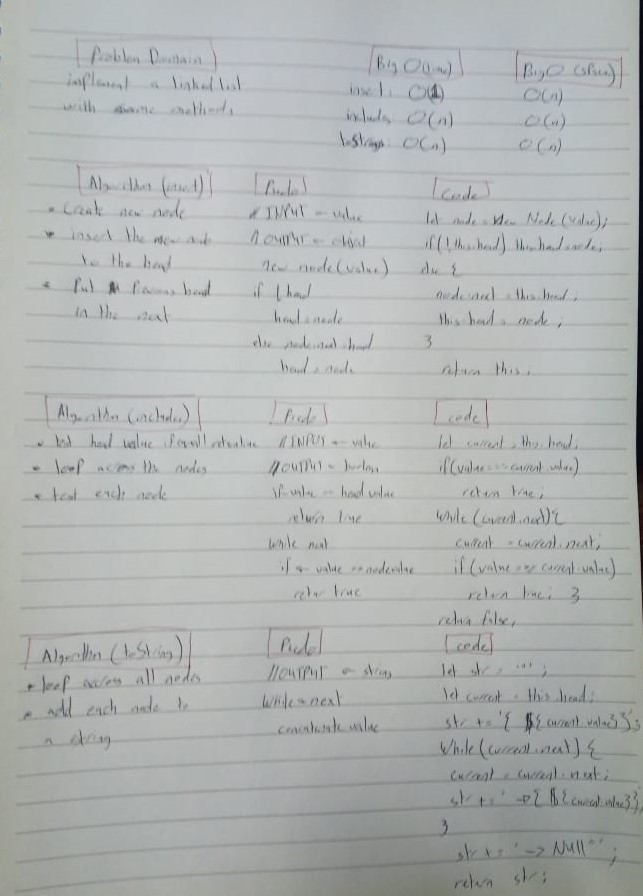 Problem Domain
implement a linked list
with some methods
Big O(time)
insert: O(1)
includes O(n)
toString: O(n)
Big O (space)
O(n)
O(n)
O(n)
Algorithm (insert)
• Create new node
• insert the new node
to the head
• Put head
in the next
Psudo
// INPUT <- value
// OUTPUT <- object
new node(value)
if ! head
head = node
else node.next = head
head = node
Code
let node = New Node (value);
if(! this.head) this.head = node;
else {
node.next = this.head;
this.head = node;
}
return this;
Algorithm (includes)
• test head value if
• loop across the nodes
• test each node
Psudo
// INPUT <- value
// OUTPUT <- boolean
if value == head value
return true
while next
if value == node value
return true
code
let current = this.head;
if(value === current.value)
return true;
While (current.next){
current = current.next;
if (value === current.value)
return true; }
return false;
Algorithm (toString)
• loop across all nodes
• add each node to
a string
Psudo
// OUTPUT <- string
While next
concatenate value
code
let str = '';
let current = this.head;
str += '{ ${current.value}}';
While (current.next) {
current = current.next;
str += ' -> { ${current.value}};
}
str += '-> Null';
return str;